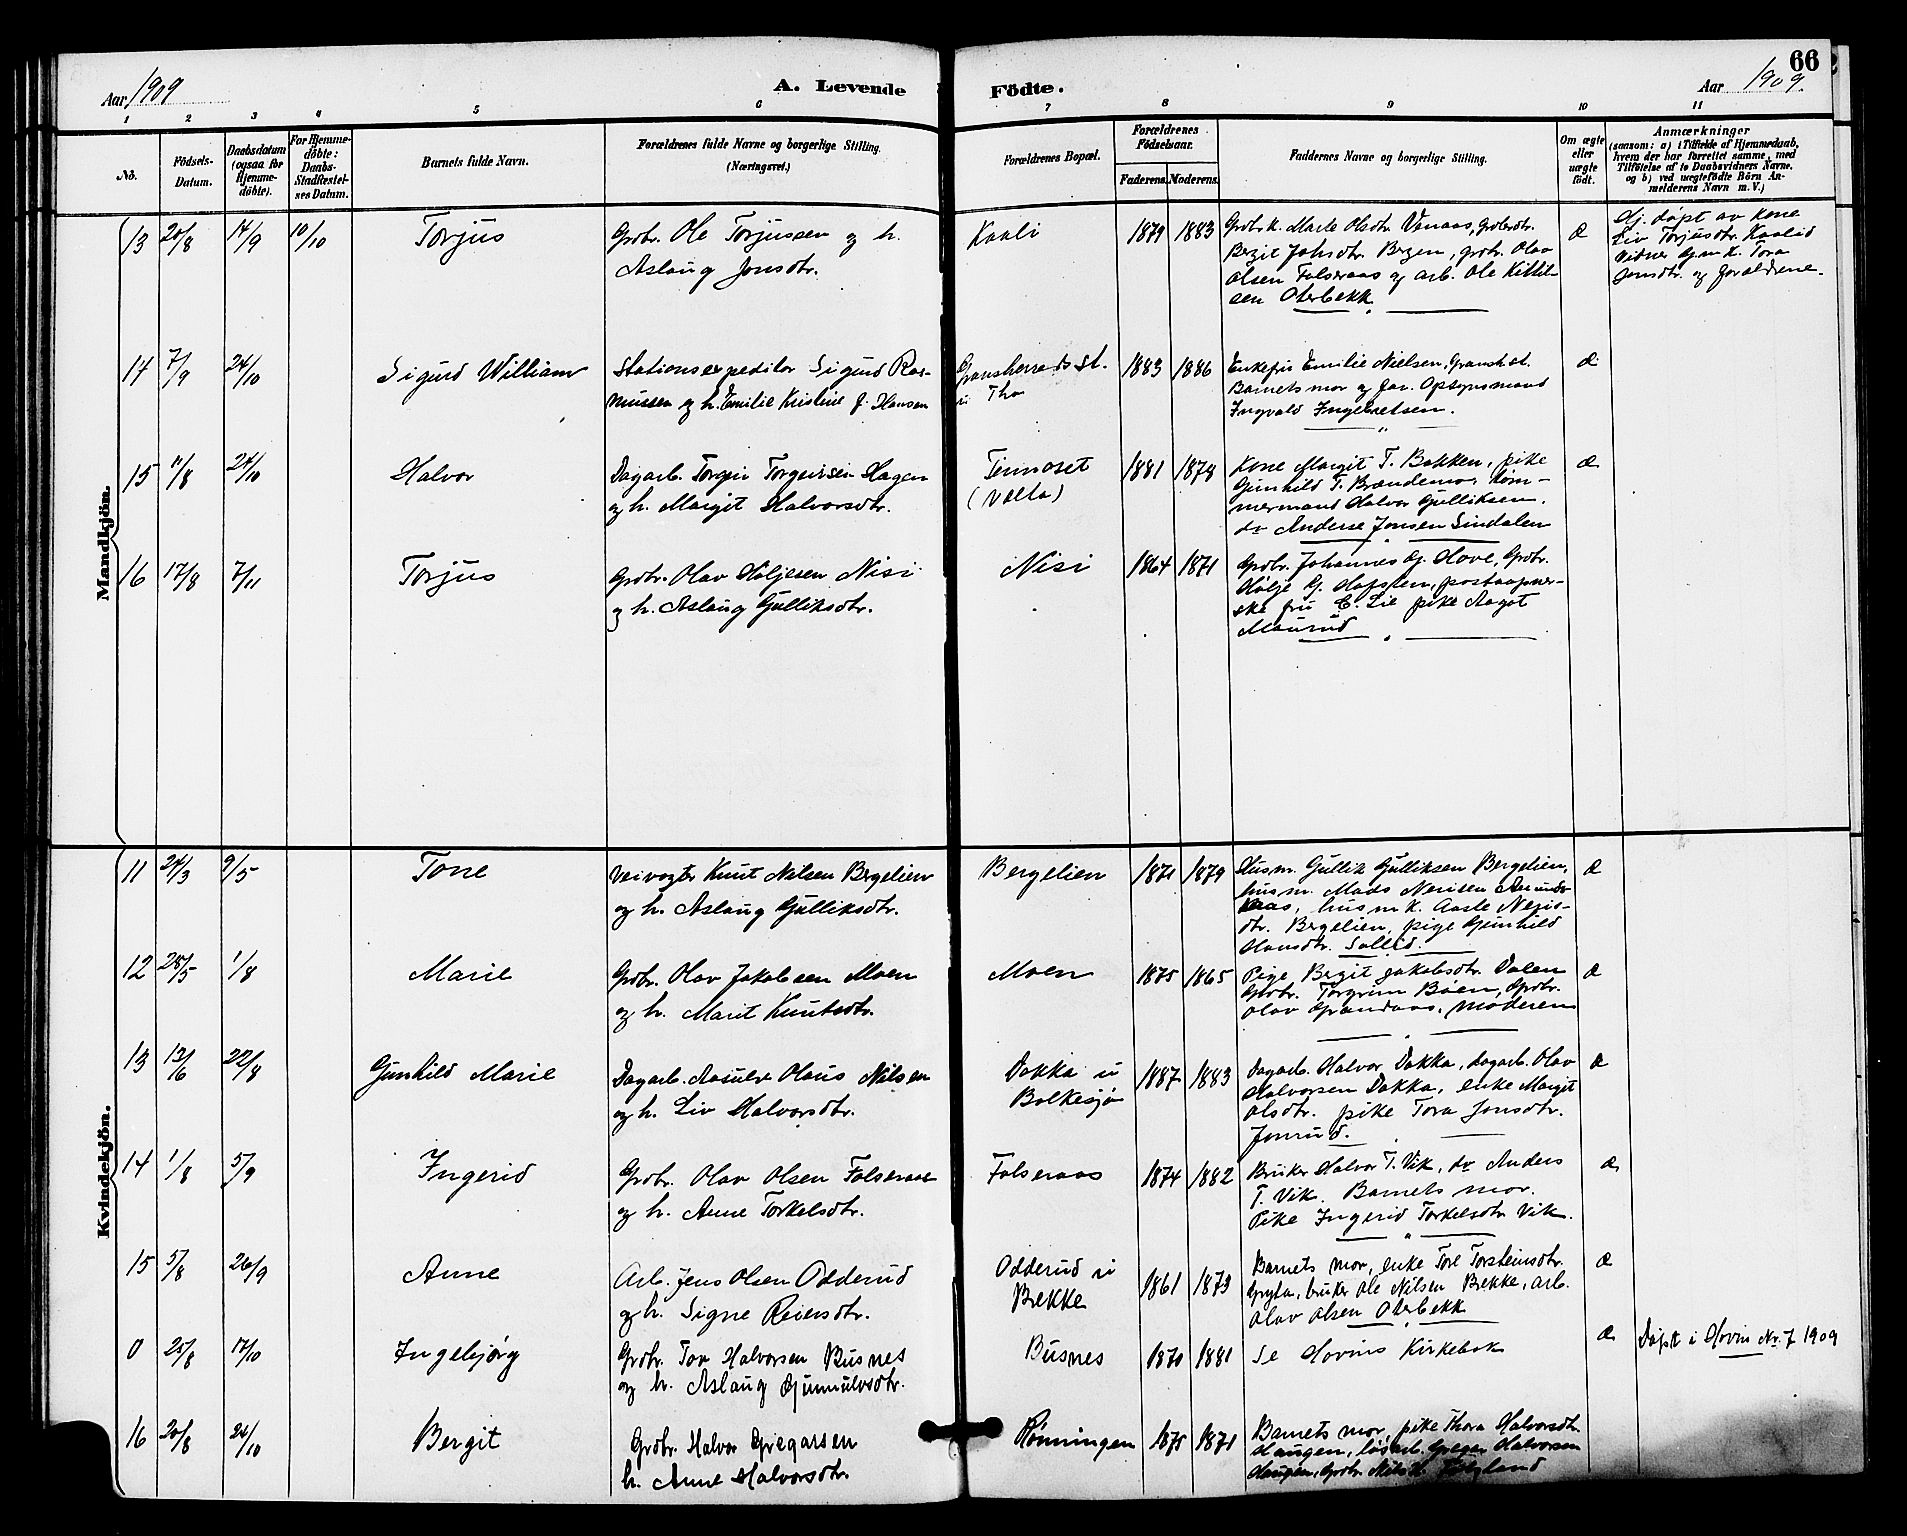 66
Aar 1909
A. Levende
Födte.
Aar 1909.
1 2 3 4 5 6 7 8 9 10 11
No.
Födsels-Datum.
Daabsdatum (ogsaa for Hjemmedöbte).
For Hjemmedöbte: Daabs-Stadfæstelses Datum.
Barnets fulde Navn.
Forældrenes fulde Navne og borgerlige Stilling.
(Næringsvei.)
Forældrenes Bopæl.
Forældrenes Födselsaar.
Faderens. Moderens.
Faddernes Navne og borgerlige Stilling.
Om ægte eller uægte födt.
Anmærkninger
(saasom: a) i Tilfælde af Hjemmedaab,
hvem der har forrettet samme, med
Tilföielse af to Daabsvidners Navne.
og b) ved uægtefödte Börn Anmelderens Navn m. V.)
Mandkjön.
13 20/8 14/9 10/10 Torjus
Grdbr. Ole Torjussen og h.
Aslaug Jonsdtr.
Kaali 1879 1883
Grdbr.k. Marte Olsdtr. Vanaas, Grdbrdtr.
Bergit Johsdtr. Bergen, grdbr. Olav
Olsen Folseraas og arb. Ole Kittilsen Oterbekk
æ
Hj. døpt av kone
Liv Torjusdtr. Kaalid
Vidner Gm.k. Tora
Jonsdtr. og forældrene.
14 7/9 24/10 Sigurd William
Stationsexpeditør Sigurd Rasmussen og h. Emilie Kristine f. Hansen
Gransherreds st.
Tho
1883 1886
Enkefru Emilie Nielsen, Gransh st.
Barnets mor og far. Opsynsmand
Ingvald Ingebretsen.
æ
15 11/8 24/10 Halvor
Dagarb. Torgeir Torgeirsen Hagen
og h. Margit Halvorsdtr.
Tinnoset
1881 1878
Kone Margit T. Bakken, pike
Gunhild T. Brændemo, tømmermand Halvor Gulliksen.
do Anders Jonsen Sindalen
æ
16 17/8 7/11 Torjus
Grdbr. Olav Høljesen Nisi
og h. Aslaug Gulliksdtr.
Nisi 1864 1871
Grdbr. Johannes Hj. Hove, Grdbr.
Hølje G. Hafsten, postaapnerske fru C. Lie pike Aagot
Maurud
Kvindekjön.
11 24/3 9/5 Tone
Veivogter Knut Nilsen Bergelien
og h. Aslaug Gulliksdtr.
Bergelien 1871 1879
Husm. Gullik Gulliksen Bergelien,
husm. Mads Nerisen
husm k. Aaste Nerisdtr. Bergelien, pige Gunhild
Hansdtr.
æ
12 28/5 1/8 Marie
Grdbr. Olav Jakobsen Moen
og h. Marit Knutsdtr.
Moen 1875 1865
Pige Bergit Jakobsdtr. Dalen
Grdbr. Torgrim Bøen, Grdbr.
Olav Grandaas, Moderen
æ
13 13/6 22/8 Gunhild Marie
Dagarb. Aasulv Olaus Nilsen
og h. Liv Halvorsdtr.
Dokka u
Bolkesjø
1887 1883
Dagarb. Halvor Dokka, dagarb. Olav
Halvorsen Dokka, enke Margit
Olsdtr. pike Tora Jonsdtr.
Jonrud.
æ
14 1/8 5/9 Ingerid
Grdbr. Olav Olsen Folseraas
og h. Anne Torkelsdtr.
Folseraas 1874 1882
Bruker Halvor T. Vik, do Anders
T. Vik. Barnets mor.
Pike Ingerid Torkelsdtr Vik.
æ
15 5/8 26/9 Anne
Arb. Jens Olsen Odderud
og h. Signe Reiersdtr.
Odderud u
Bekke
1861 1873
Barnets mor, enke Tore Torsteinsdtr.
Gryta, bruker Ole Nilsen Bekke, arb.
Olav Olsen Oterbekk
æ
0 25/8 17/10 Ingebjørg
Grdbr. Tov Halvorsen Busnes
og h. Aslaug Gunnulvsdtr.
Busnes 1870 1881
Se Hovins Kirkebok
æ
Døpt i Hovin Nr. 7 1909
16 20/8 24/10 Bergit
Grdbr. Halvor Gregarsen
h. Anne Halvorsdtr.
Rønningen 1875 1871
Barnets mor, pike Thora Halvorsdtr.
Haugen, løsarb. Greger Halvorsen
Haugen, Grdbr. Nils H.